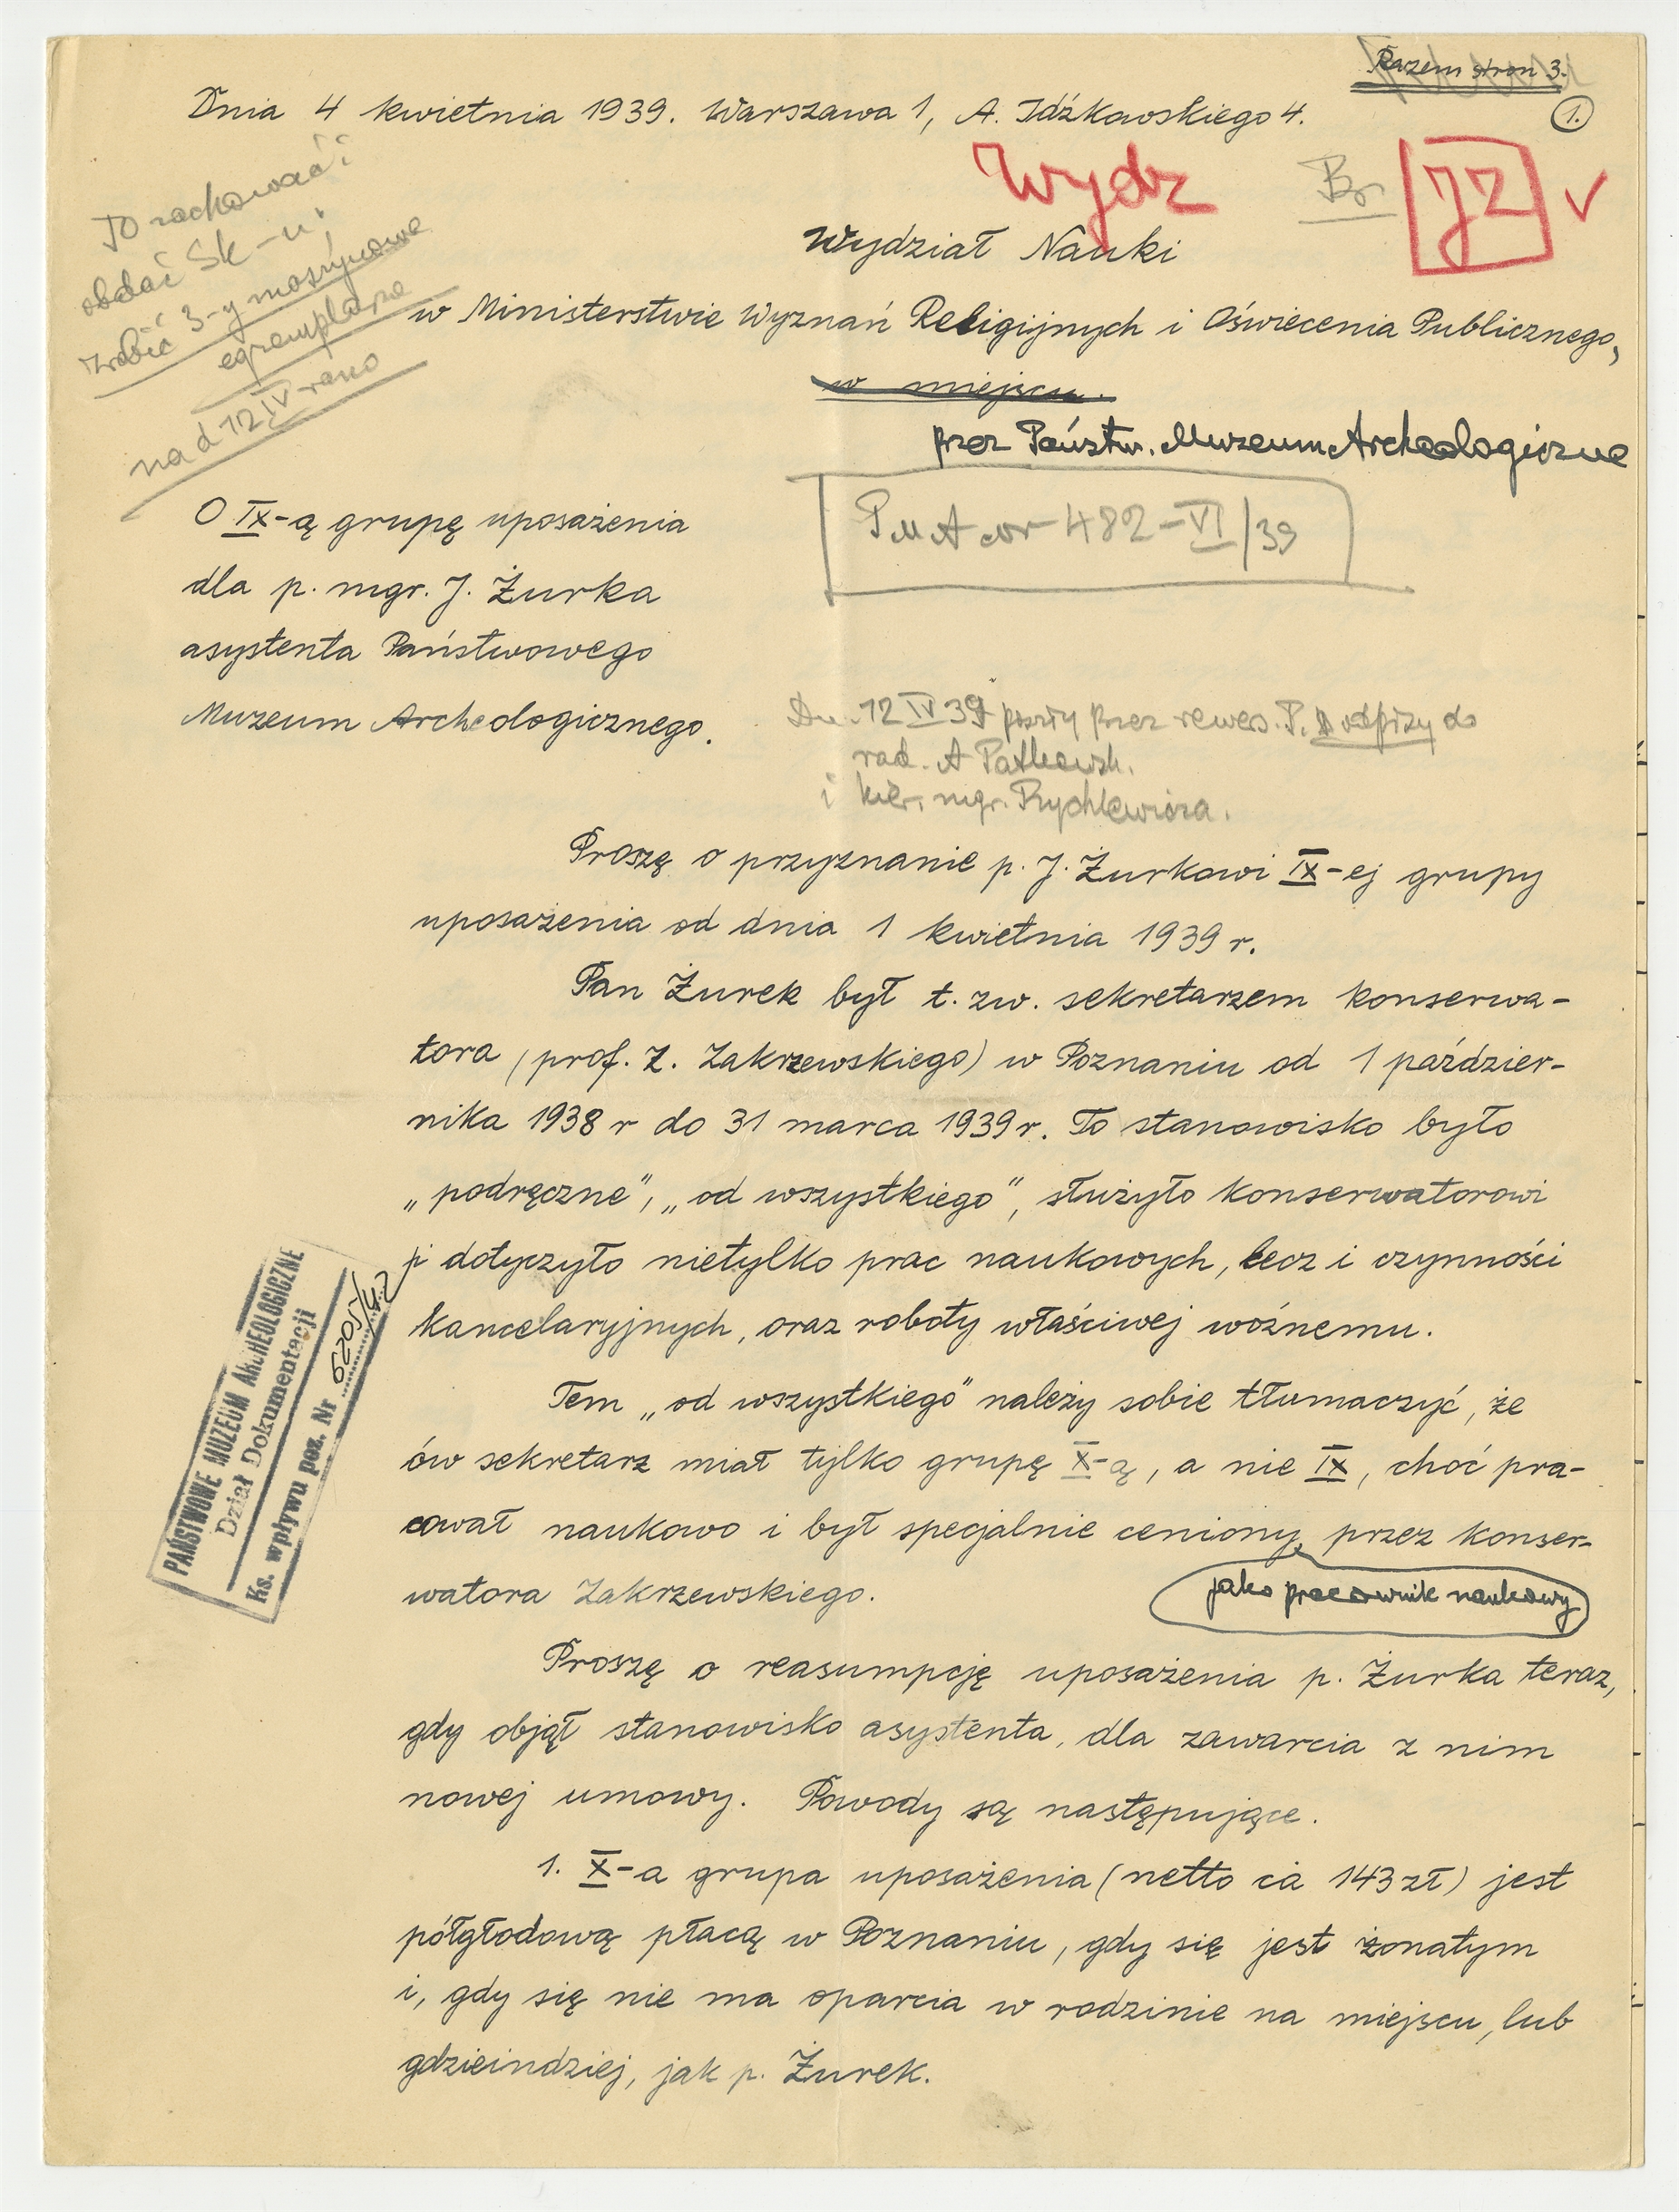 Razem stron 3.
1.
Dnia 4 kwietnia 1939. Warszawa 1, A. Idźkowskiego 4.
Wydz
Br
JZ
To rachować i
oddać Sk-u;
zrobić 3-y maszynowe
egzemplarze
na d 12 IV rano
Wydział Nauki
w Ministerstwie Wyznań Religijnych i Oświecenia Publicznego,
w miejscu.
przez Państw. Muzeum Archeologiczne
PMA nr 482-VI/39
O IX-ą grupę uposażenia
dla p. mgr. J. Żurka
asystenta Państwowego
Muzeum Archeologicznego.
Dn. 12 IV 39 poszły przez rewers. P. odpisy do
rad. A Patkowsk.
i kier. mgr. Rychlewicza.
Proszę o przyznanie p. J. Żurkowi IX-ej grupy
uposażenia od dnia 1 kwietnia 1939 r.
Pan Żurek był t. zw. sekretarzem konserwa-
tora (prof. Z. Zakrzewskiego) w Poznaniu od 1 paździer-
nika 1938 r do 31 marca 1939 r. To stanowisko było
„podręczne", „od wszystkiego", służyło konserwatorowi
i dotyczyło nietylko prac naukowych, lecz i czynności
kancelaryjnych, oraz roboty właściwej woźnemu.
Tem „od wszystkiego" należy sobie tłumaczyć, że
ów sekretarz miał tylko grupę X-ą, a nie IX, choć pra-
cował naukowo i był specjalnie ceniony przez konser-
jako pracownik naukowy
watora Zakrzewskiego.
Proszę o reasumpcję uposażenia p. Żurka teraz,
gdy objął stanowisko asystenta, dla zawarcia z nim
nowej umowy. Powody są następujące.
1. X-a grupa uposażenia (netto ca 143 zł) jest
półgłodową płacą w Poznaniu, gdy się jest żonatym
i, gdy się nie ma oparcia w rodzinie na miejscu, lub
gdzieindziej, jak p. Żurek.
PAŃSTWOWE MUZEUM ARCHEOLOGICZNE
Dział Dokumentacji
Ks. wpływu poz. Nr 6205/42